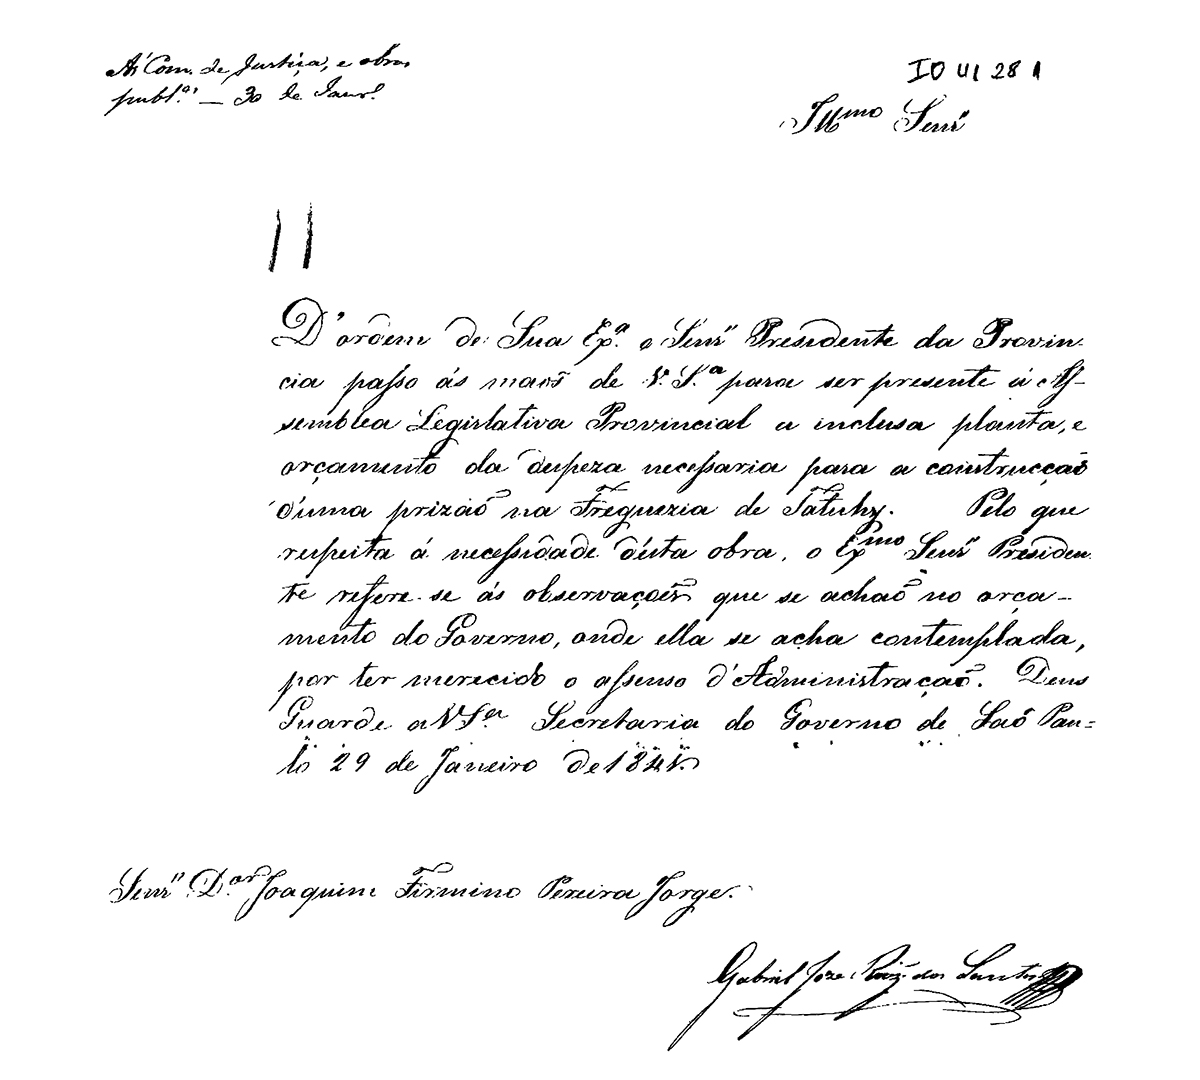 Ás Com. de Justiça, e obras
publ.as — 30 de Janr.o
IO 41 28 1
Illmo Senr
D'ordem de Sua Ex.a o Senr Presidente da Provin
cia passo ás maõs de V. S.a para ser presente á As-
semblea Legislativa Provincial a inclusa planta, e
orçamento da despeza necessaria para a construcçaõ
d'uma prizaõ na Freguezia de Tatuhy. Pelo que
respeita á necessidade d'esta obra, o Exmo Senr Presiden
te refere-se ás observaçoẽs que se achaõ no orça-
mento do Governo, onde ella se acha contemplada,
por ter merecido o assenso d'Administraçaõ. Deus
Guarde a V S.a Secretaria do Governo de Saõ Pau=
lo 29 de Janeiro de 1841.
Senr D.or Joaquim Firmino Pereira Jorge.
Gabriel Joze Roiz. dos Santos